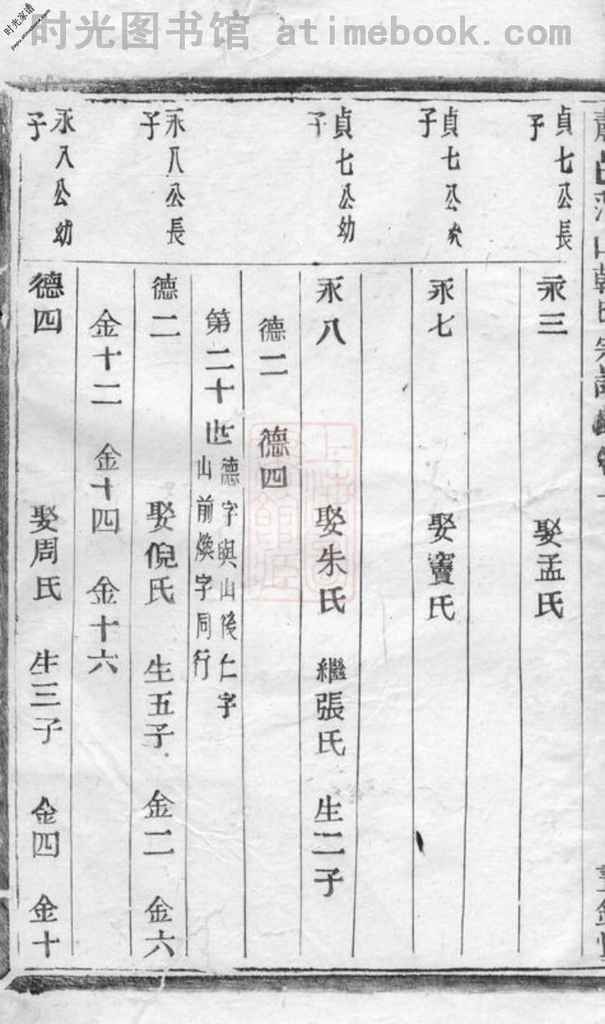 时光图书馆 atimebook.com
时光家谱
貞七公長子
永三 娶孟氏
貞七公次子
永七 娶竇氏
貞七公幼子
永八 娶朱氏 繼張氏 生二子
德二 德四
第二十世 德字與山後仁字山前煥字同行
永八公長子
德二 娶倪氏 生五子 金二 金六
金十二 金十四 金十六
永八公幼子
德四 娶周氏 生三子 金四 金十